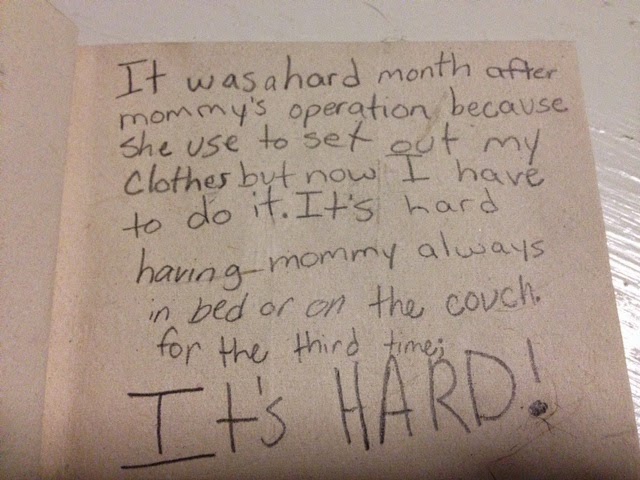 It was a hard month after
mommy's operation because
she use to set out my
clothes but now I have
to do it. It's hard
having mommy always
in bed or on the couch.
for the third time;
It's HARD!